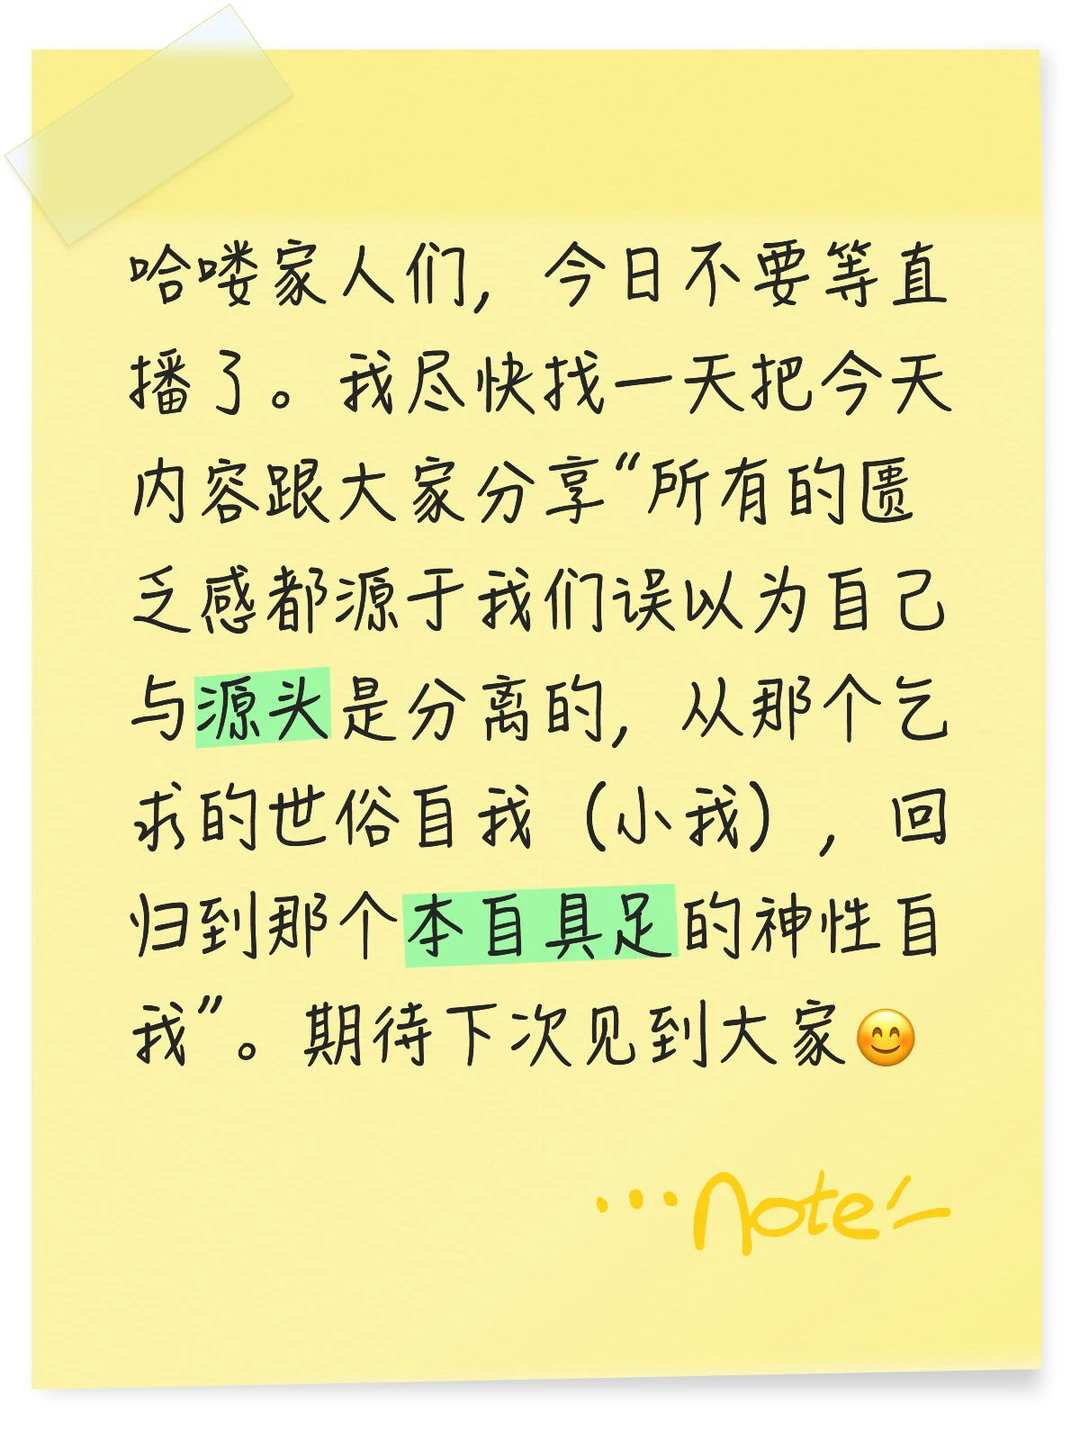 哈喽家人们，今日不要等直
播了。我尽快找一天把今天
内容跟大家分享“所有的匮
乏感都源于我们误以为自己
与源头是分离的，从那个乞
求的世俗自我（小我），回
归到那个本自具足的神性自
我”。期待下次见到大家😊
...note